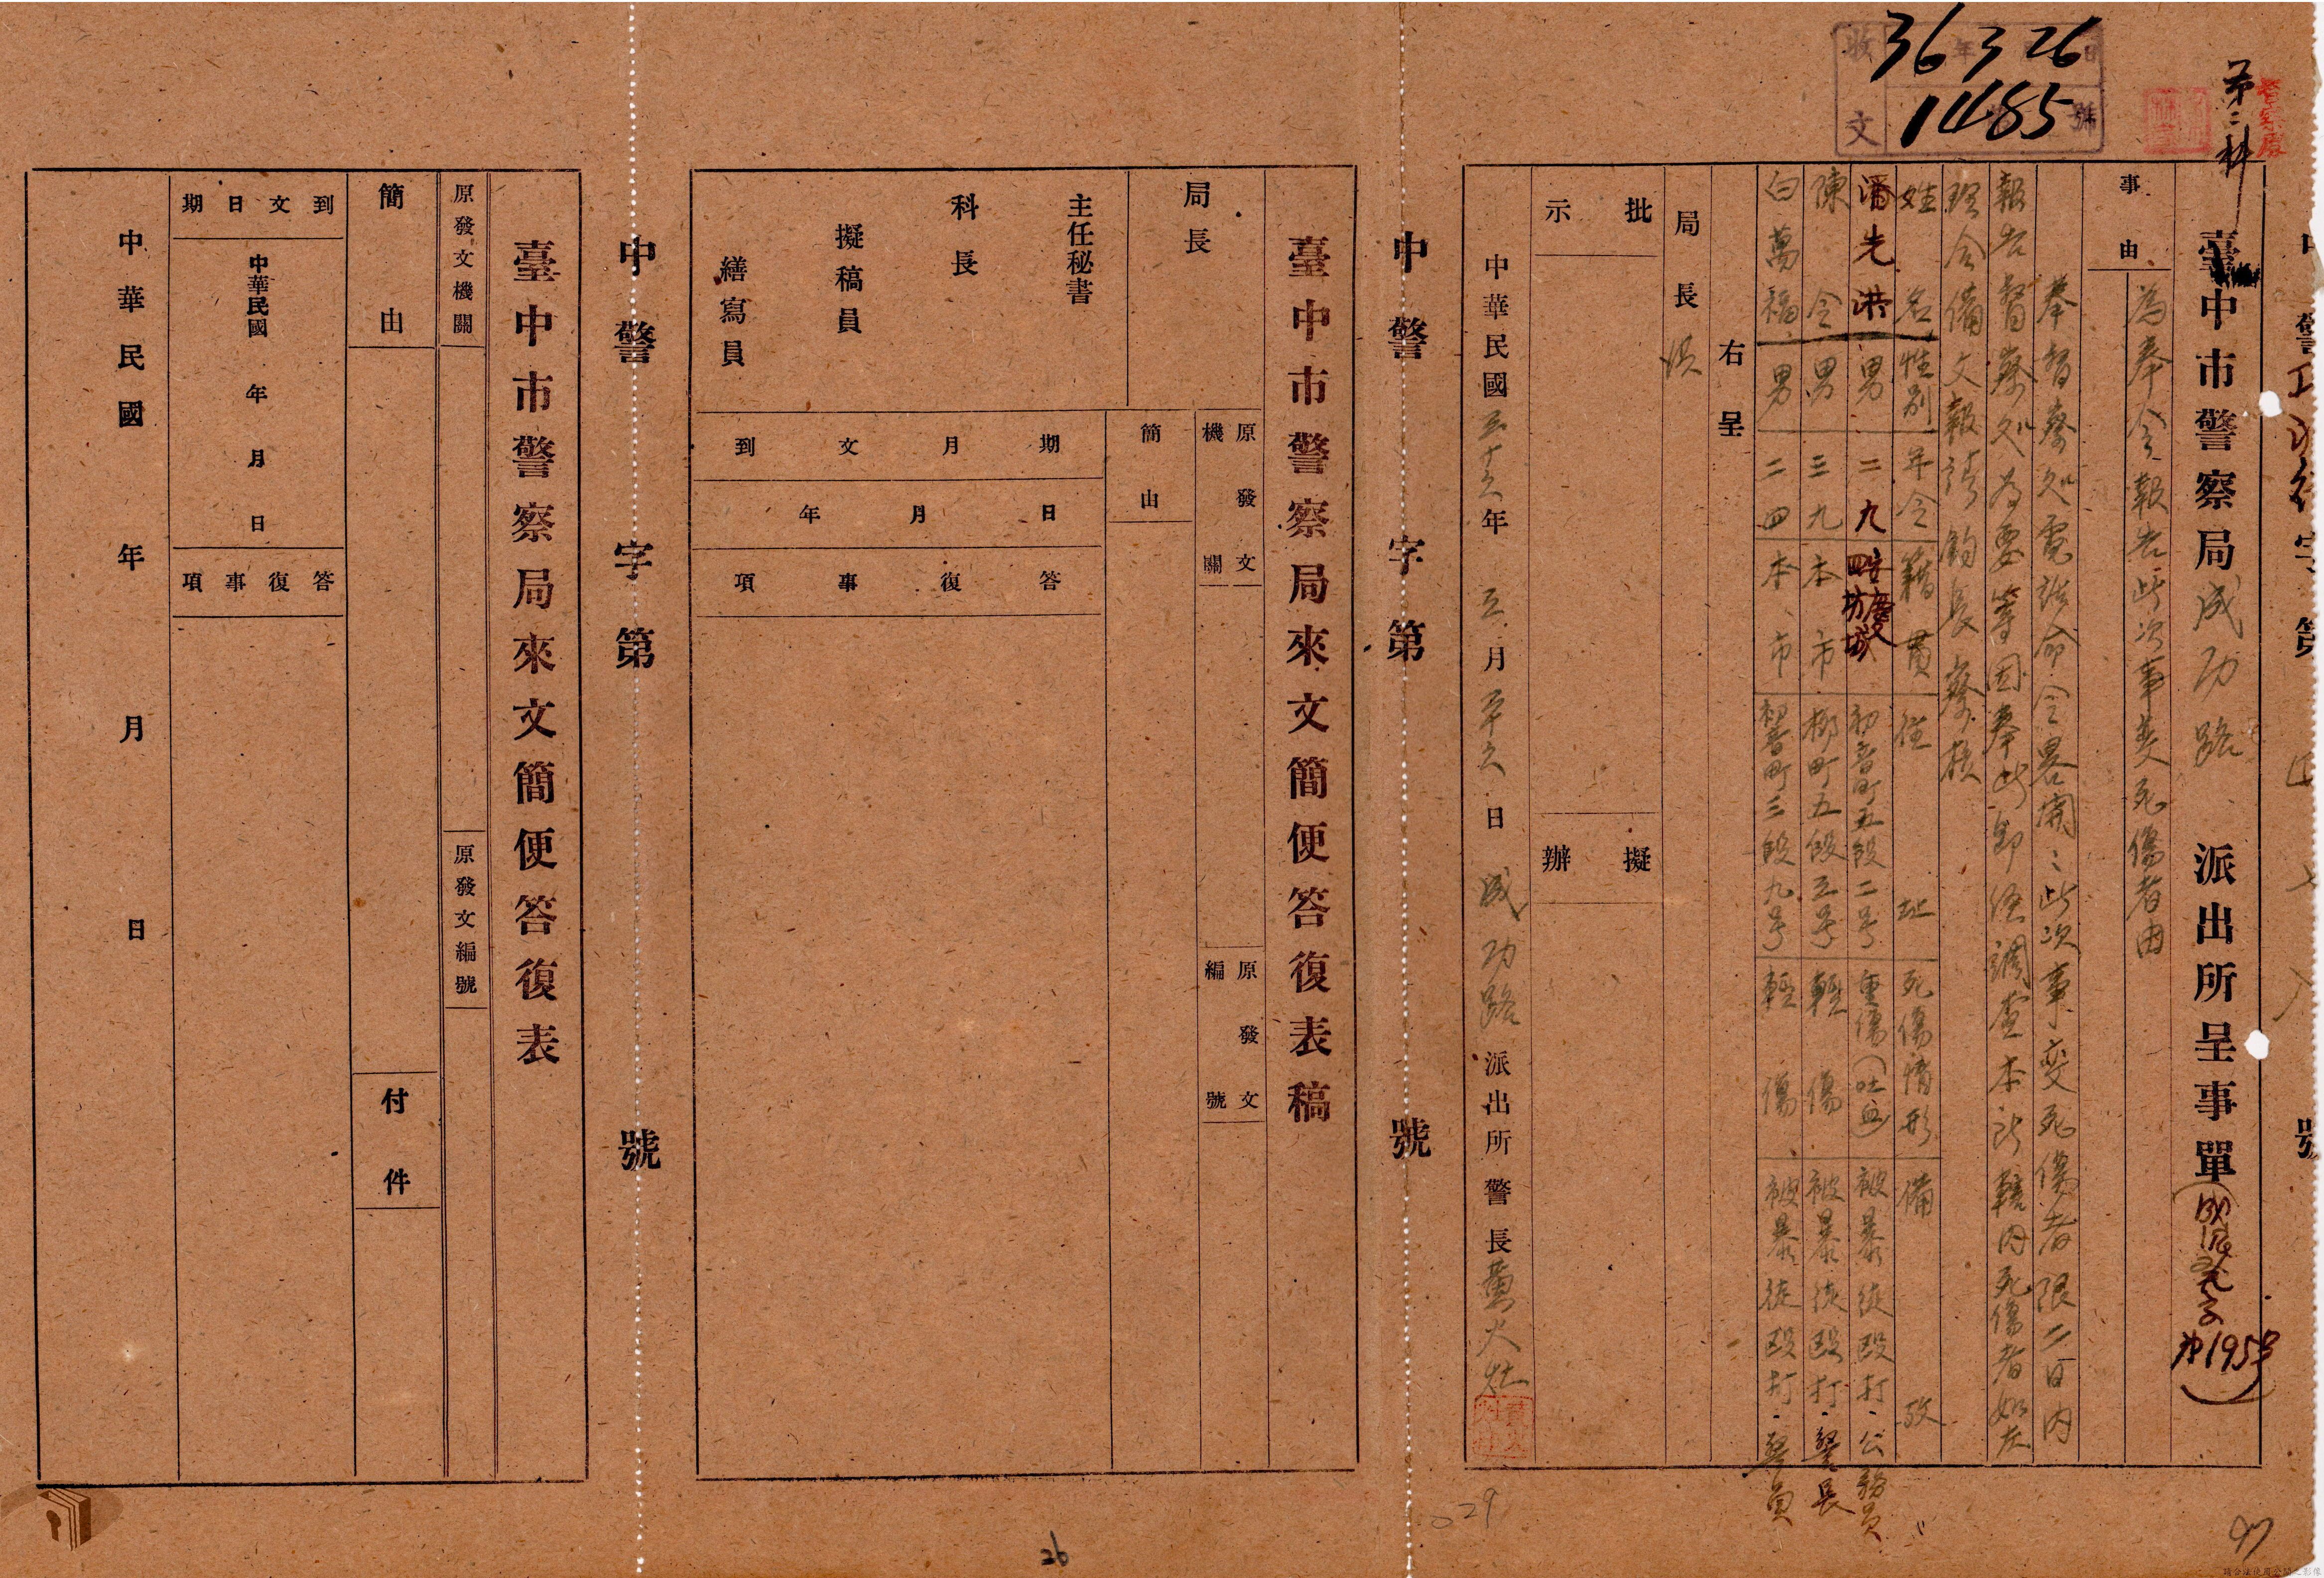 收文 36年3月26日
1485號
第二科
號
臺中市警察局成功路派出所呈事單
1958
事由
為奉令報告此次事變死傷者由
奉督察処電話命令畧開:此次事變死傷者限二日内
報告督察処為要等因奉此卽經調查本所轄内死傷者如左
理合備文報請鈞長察核
姓名 性別 年令 籍貫 住址 死傷情形 備攷
潘先洪 男 二九 初音町五段二号 重傷(吐血) 被暴徒毆打.公務員
陳令 男 三九 本市 柳町五段三号 輕傷 被暴徒毆打.警長
白萬福 男 二四 本市 初音町三段九号 輕傷 被暴徒毆打.警員
右呈
局長 洪
批示
擬辦
中華民國三十六年三月二十六日 成功路派出所警長黃火灶
中警字第號
臺中市警察局來文簡便答復表稿
原發文機關
原發文編號
簡由
局長
主任秘書
科長
擬稿員
繕寫員
到文月期
年月日
答復事項
中警字第號
臺中市警察局來文簡便答復表
原發文機關
原發文編號
簡由
付件
到文日期
中華民國 年 月 日
答復事項
中華民國 年 月 日
029
26
97